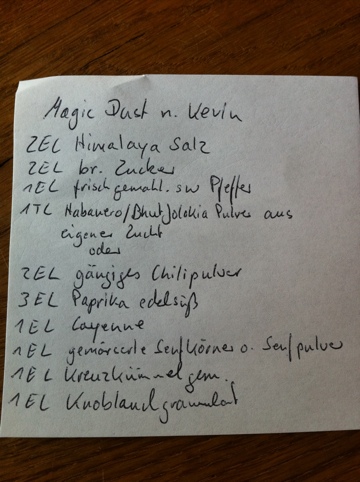 Magic Dust n. Kevin
2EL Himalaya Salz
2EL br. Zucker
1EL frisch gemahl. sw Pfeffer
1TL Habanero/Bhut Jolokia Pulver aus
eigener Zucht
oder
2EL gängiges Chilipulver
3EL Paprika edelsüß
1EL Cayenne
1EL gemörserte Senfkörner o. Senfpulver
1EL Kreuzkümmel gem.
1EL Knoblauchgranulat